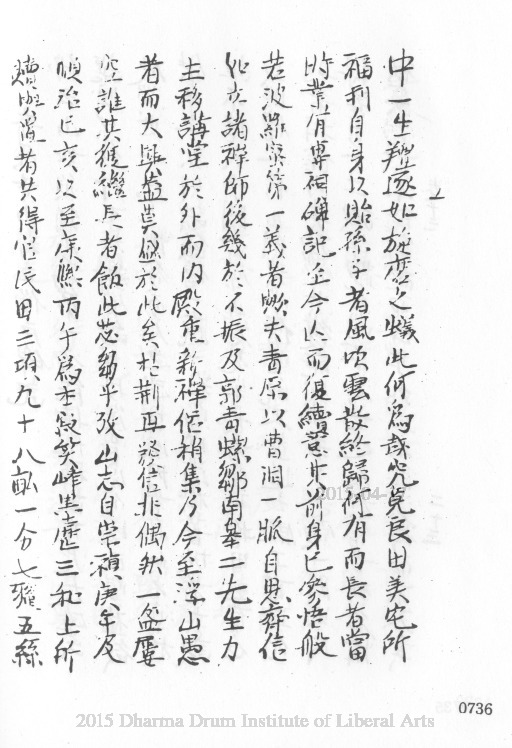 中一生獨逐如旋磨之蟻此何為哉究竟良田美宅所
福利自身以貽孫子者風吹雲散終歸何有而長者當
時業有專祠碑記至今亡而復續豈其前身已參悟般
若波羅蜜第一義者歟夫青原以曹洞一脈自思齊信
化立諸禪師後幾於不振及郭青螺鄒南皋二先生力
主移講堂於外而內殿重新禪侶稍集乃今至浮山愚
者而大興蓋莫盛於此矣杜荊再發信非偶然一盔屢
空誰其獲繼長者飯此苾芻乎攷山志自崇禎庚午及
順治己亥以至康熙丙午為本寂笑峰黑壢三和上所
贖與置者共得官民田三頃九十八畝一分七釐五絲
0736
2015 Dharma Drum Institute of Liberal Arts